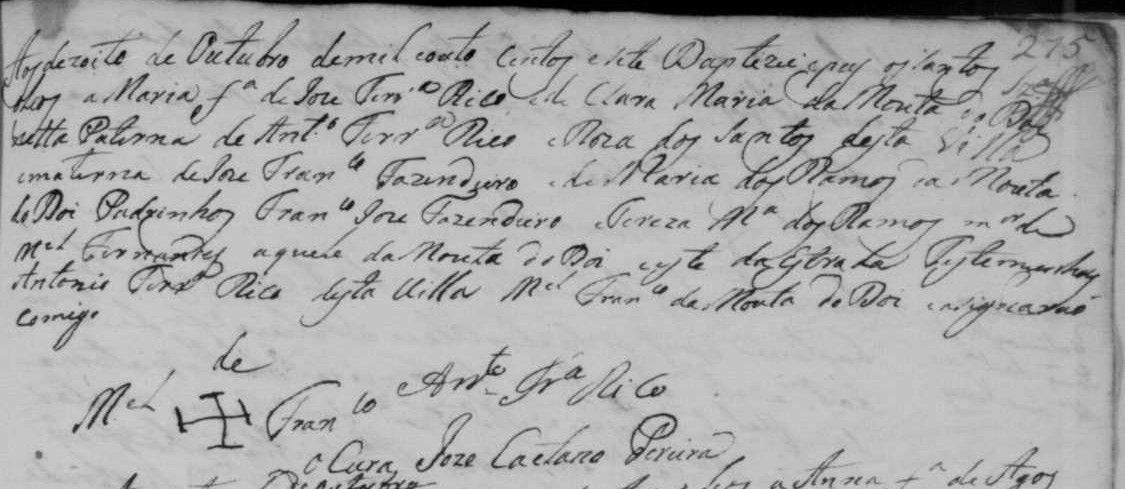 275
Aos dezoito de Outubro de mil e outo centos e sete Baptizei e pus os santos
oleos a Maria f.ª de Joze Ferr.ª Rico e de Clara Maria da Mouta do Boi
netta Paterna de Ant.º Ferr.ª Rico e Roza dos Santos desta Villa
e materna de Joze Fran.co Fazendeiro e de Maria dos Ramos da Mouta
do Boi Padrinhos Fran.co Joze Fazendeiro e Tereza M.ª dos Ramos m.er de
M.el Fernandes aquele da Mouta do Boi e este da Estrada Testemunhas
Antonio Ferr.ª Rico desta Villa M.el Fran.co da Mouta do Boi e asignarão
comigo
de
M.el Fran.co Ant.º Fr.ª Rico
o Cura Joze Caetano Pereira
a Anna f.ª de Agos